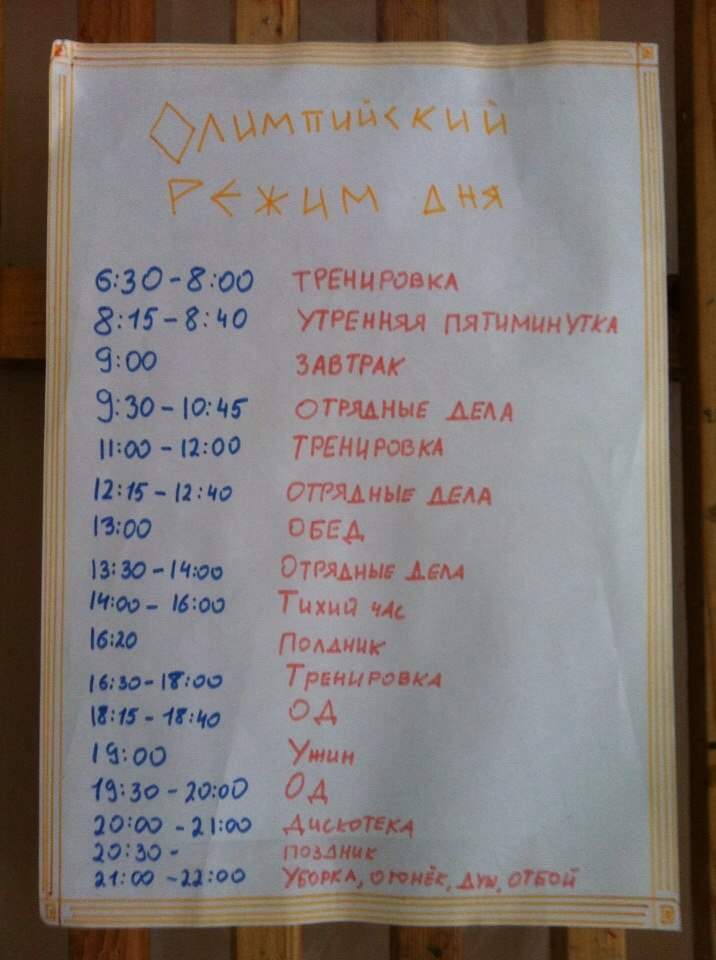 Олимпийский
режим дня
6:30-8:00 Тренировка
8:15-8:40 Утренняя пятиминутка
9:00 Завтрак
9:30-10:45 Отрядные дела
11:00-12:00 Тренировка
12:15-12:40 Отрядные дела
13:00 Обед
13:30-14:00 Отрядные дела
14:00-16:00 Тихий час
16:20 Полдник
16:30-18:00 Тренировка
18:15-18:40 ОД
19:00 Ужин
19:30-20:00 ОД
20:00-21:00 Дискотека
20:30- поздник
21:00-22:00 Уборка, огонёк, душ, отбой